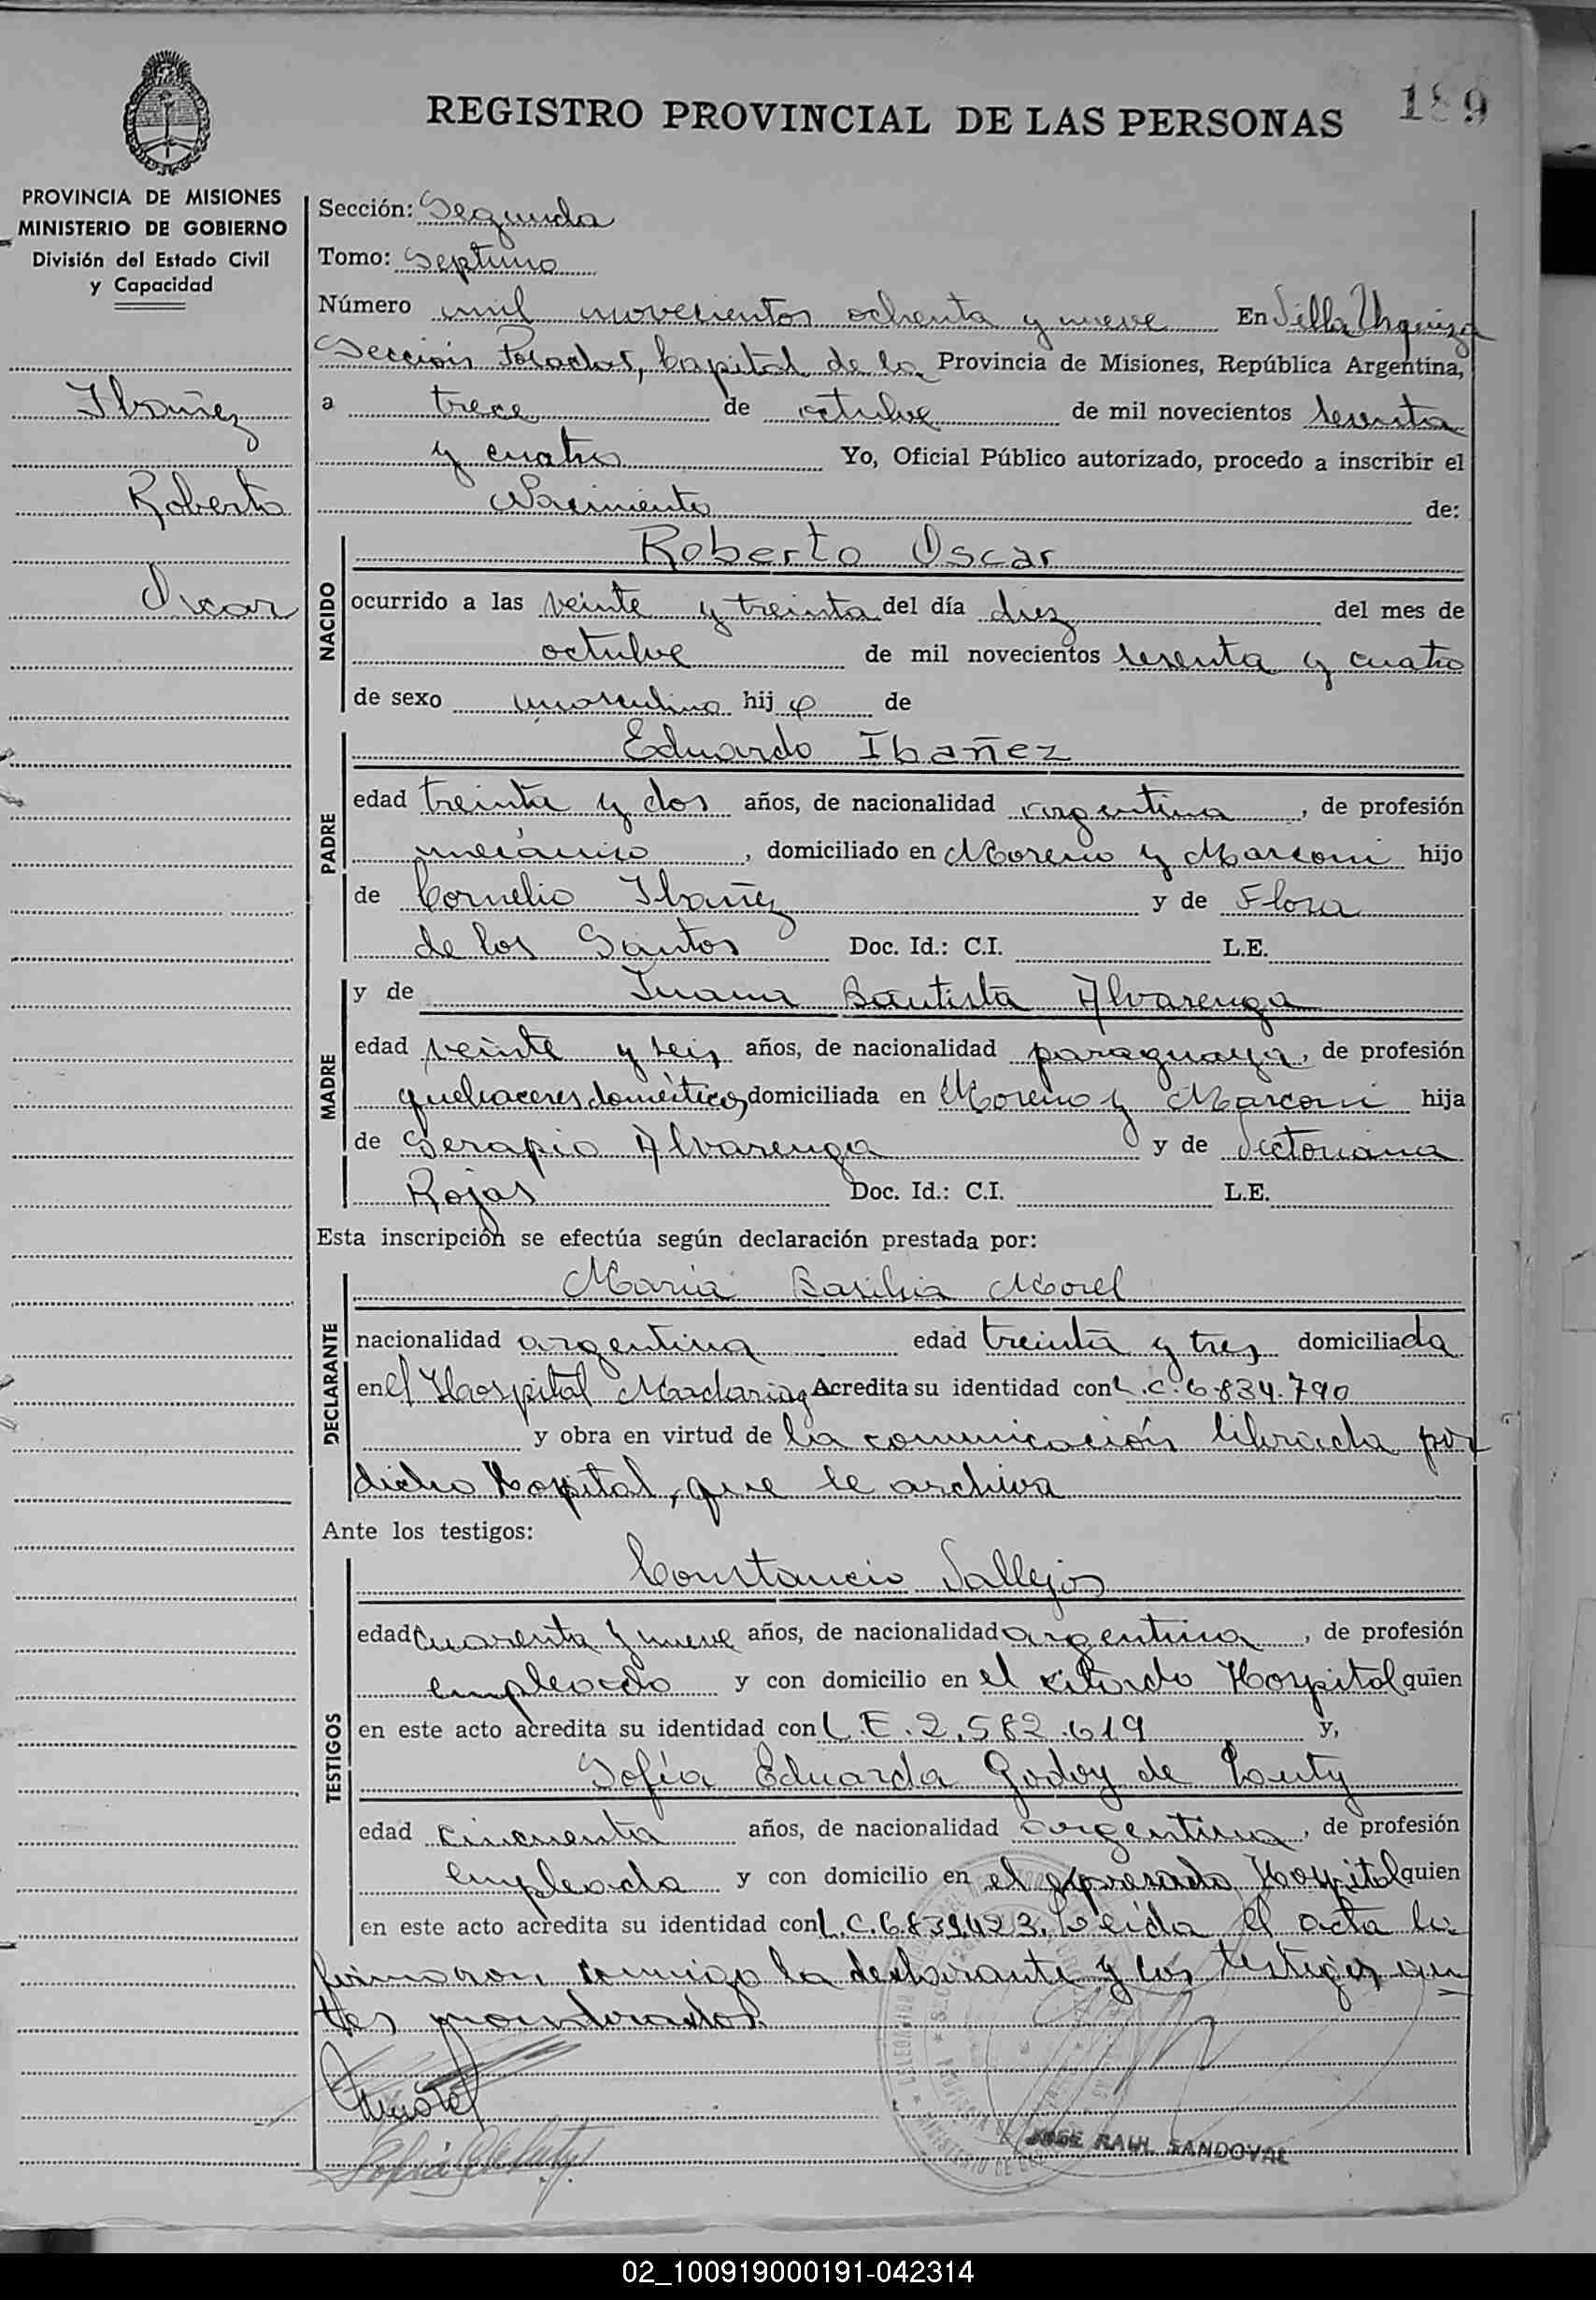 189
REGISTRO PROVINCIAL DE LAS PERSONAS
PROVINCIA DE MISIONES
MINISTERIO DE GOBIERNO
División del Estado Civil
y Capacidad
Ibañez
Roberto
Oscar
Sección: Segunda
Tomo: Septimo
Número mil novecientos ochenta y nueve En Villa Urquiza
Sección Posadas, Capital de la Provincia de Misiones, República Argentina,
a trece de octubre de mil novecientos sesenta
y cuatro Yo, Oficial Público autorizado, procedo a inscribir el
Nacimiento de:
NACIDO
Roberto Oscar
ocurrido a las veinte y treinta del día diez del mes de
octubre de mil novecientos sesenta y cuatro
de sexo masculino hijo de
PADRE
Eduardo Ibañez
edad treinta y dos años, de nacionalidad argentina, de profesión
mecánico, domiciliado en Moreno y Marconi hijo
de Cornelio Ibañez y de Flora
de los Santos Doc. Id.: C.I. L.E.
MADRE
y de Juana Bautista Alvarenga
edad veinte y seis años, de nacionalidad paraguaya, de profesión
quehaceres domésticos, domiciliada en Moreno y Marconi hija
de Serapio Alvarenga y de Victoriana
Rojas Doc. Id.: C.I. L.E.
Esta inscripción se efectúa según declaración prestada por:
DECLARANTE
María Basilia Morel
nacionalidad argentina edad treinta y tres domiciliada
en el Hospital Madariaga Acredita su identidad con L.C. 6.834.790
y obra en virtud de la comunicación librada por
dicho Hospital, que se archiva
Ante los testigos:
TESTIGOS
Constancio Vallejos
edad cuarenta y nueve años, de nacionalidad argentina, de profesión
empleado y con domicilio en el citado Hospital quien
en este acto acredita su identidad con L.E. 2.582.619 y,
Sofía Eduarda Godoy de Louty
edad cincuenta años, de nacionalidad argentina, de profesión
empleada y con domicilio en el expresado Hospital quien
en este acto acredita su identidad con L.C. 6.839.423. Leída el acta la
firmaron conmigo la declarante y los testigos an
tes nombrados.
JOSE RAUL SANDOVAL
02_100919000191-042314